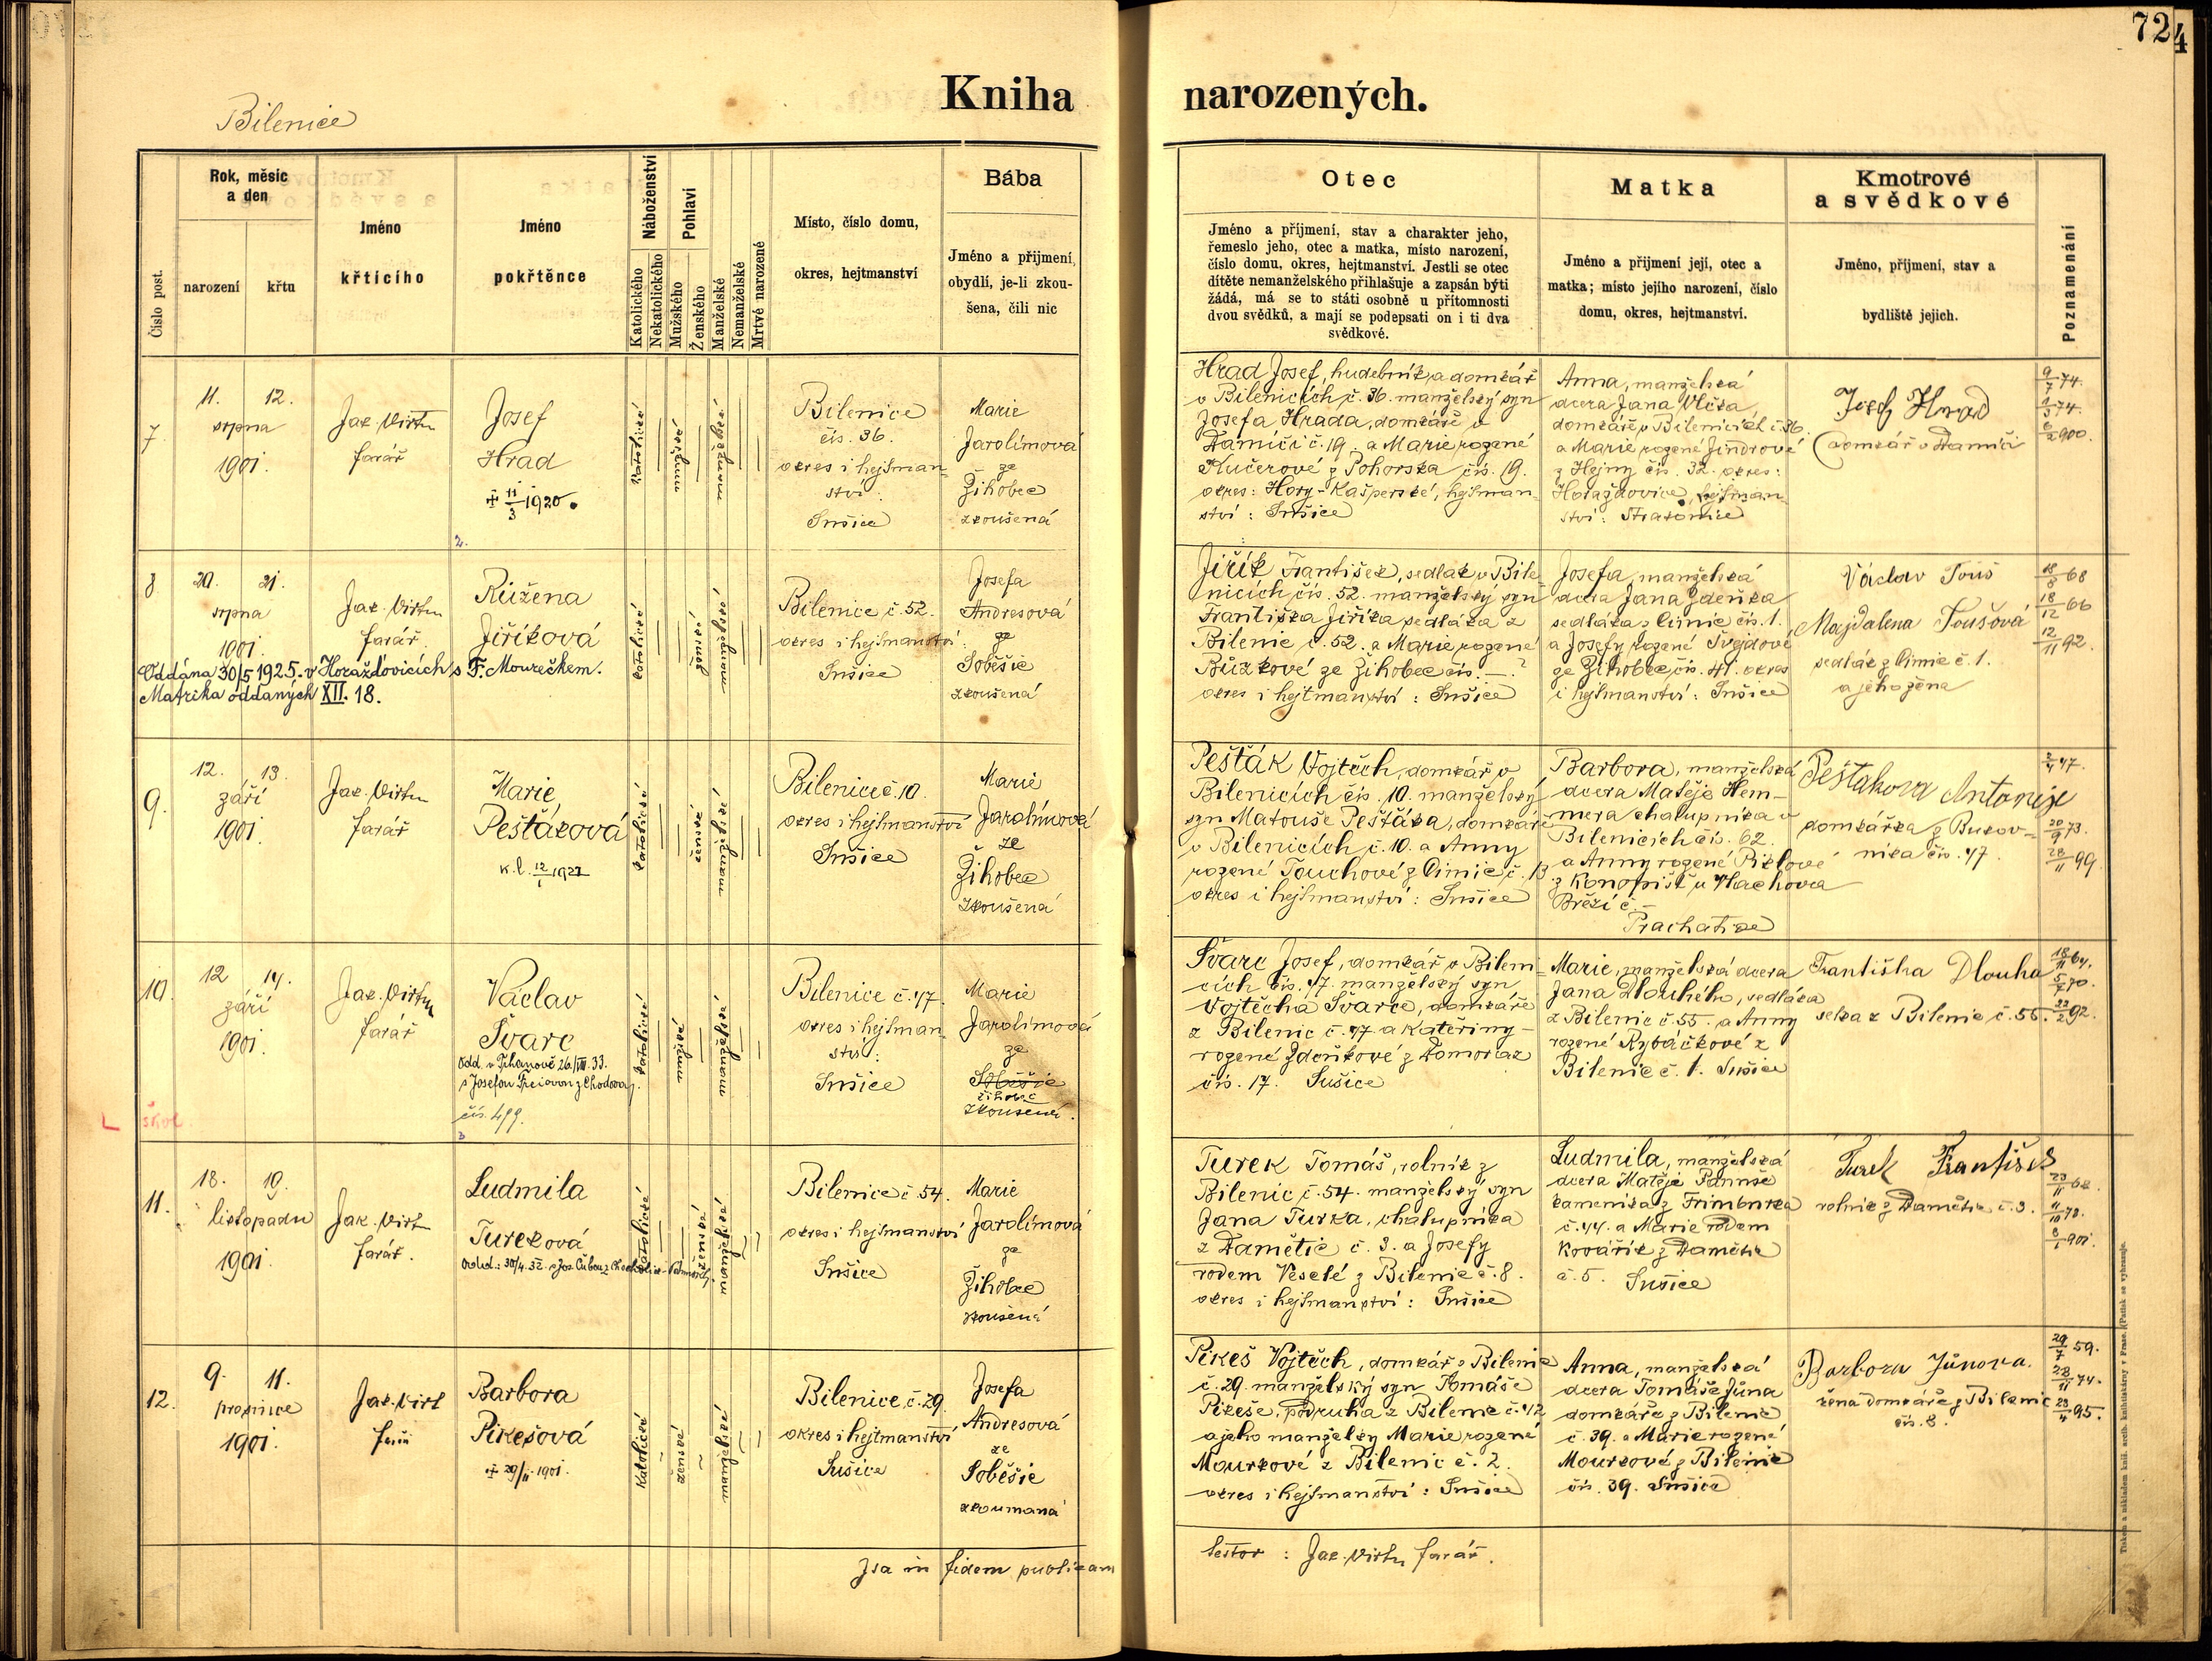 724
Kniha narozených.
Bilenice
Číslo post.
Rok, měsíc a den
narození
křtu
Jméno křticího
Jméno pokřtěnce
Náboženství
Katolického
Nekatolického
Pohlaví
Mužského
Ženského
Manželské
Nemanželské
Mrtvě narozené
Místo, číslo domu, okres, hejtmanství
Bába
Jméno a přijmení, obydlí, je-li zkoušena, čili nic
Otec
Jméno a příjmení, stav a charakter jeho,
řemeslo jeho, otec a matka, místo narození,
číslo domu, okres, hejtmanství. Jestli se otec
dítěte nemanželského přihlašuje a zapsán býti
žádá, má se to státi osobně u přítomnosti
dvou svědků, a mají se podepsati on i ti dva
svědkové.
Matka
Jméno a přijmení její, otec a
matka; místo jejího narození, číslo
domu, okres, hejtmanství.
Kmotrové
a svědkové
Jméno, příjmení, stav a
bydliště jejich.
Poznamenání
7
11. 12.
srpna
1901.
Jak. Virth
farář
Josef
Hrad
+ 11/3 1920.
katolické
mužské
manželské
Bilenice
čís. 36.
okres i hejtman
ství:
Sušice
Marie
Jarolímová
ze
Žihobec
zkoušená
Hrad Josef, hudebník a domkář
v Bilenicích č. 36. manželský syn
Josefa Hrada, domkáře v
Damíči č. 19. a Marie rozené
Kučerové z Pohorska čís. 19.
okres: Hory-Kašperské, hejtman-
ství: Sušice
Anna, manželská
dcera Jana Vlčka
domkáře v Bilenicích č. 36.
a Marie rozené Jindrové
z Hejny čís. 32. okres:
Horažďovice, hejtman
ství: Strakonice
Josef Hrad
domkář v Damíči
9/7 74.
1/3 74.
6/2 900.
8
20. 21.
srpna
1901.
Jak. Virth
farář
Růžena
Jiříková
Oddána 30/5 1925. v Horažďovicích s F. Moureškem.
Matrika oddaných XII. 18.
katolické
ženské
manželské
Bilenice č. 52.
okres i hejtmanství
Sušice
Josefa
Andresová
ze
Soběšic
zkoušená
Jiřík František, sedlák v Bile
nicích čís. 52. manželský syn
Františka Jiříka sedláka z
Bilenic č. 52. a Marie rozené
Bůzkové ze Žihobec čís. — ?
okres i hejtmanství: Sušice
Josefa, manželská
dcera Jana Zdeňka
sedláka z Čimic čís. 1.
a Josefy rozené Švejdové
ze Žihobec, čís. 41. okres
i hejtmanství: Sušice
Václav Touš
Majdalena Toušová
sedlák z Čimic č. 1.
a jeho žena
18/8 68
18/12 66
12/11 92.
9.
12. 13.
září
1901.
Jak. Virth
farář
Marie
Pešťáková
k.l. 12/1 1922
katolické
ženské
manželské
Bilenice č. 10.
okres i hejtmanství
Sušice
Marie
Jarolímová
ze
Žihobec
zkoušená
Pešťák Vojtěch, domkář v
Bilenicích čís. 10. manželský
syn Matouše Pešťáka, domkáře
v Bilenicích č. 10. a Anny
rozené Touchové z Čimic č. 13
okres i hejtmanství: Sušice
Barbora, manželská
dcera Matěje Hem-
mera chalupníka v
Bilenicích čís. 62.
a Anny rozené Piklové
z Konopišť u Vlachova
Březí č. —
Prachatice
Pešťakova Antonije
domkářka z Bukov-
níka čís. 47.
2/4 47.
20/9 73.
28/11 99.
10.
12 14.
září
1901.
Jak. Virth
farář
Václav
Švarc
Odd. v Trhanově 26/VIII. 33.
čís. 499.
škol.
katolické
mužské
manželské
Bilenice č. 47.
okres i hejtman
ství:
Sušice
Marie
Jarolímová
ze
Soběšic
Žihobec
zkoušená.
Švarc Josef, domkář v Bileni-
cích čís. 47. manželský syn
Vojtěcha Švarce, domkáře
z Bilenic č. 47 a Kateřiny
rozené Zdeňkové z Domoraz
čís. 17. Sušice
Marie, manželská dcera
Jana Dlouhého, sedláka
z Bilenic č. 55. a Anny
rozené Rybáčkové z
Bilenic č. 1. Sušice
Františka Dlouha
selka z Bilenic č. 55.
18/11 64.
5/7 70.
22/2 92.
11.
18. 19.
listopadu
1901.
Jak. Virth
farář.
Ludmila
Tureková
katolické
ženské
manželské
Bilenice č. 54.
okres i hejtmanství
Sušice
Marie
Jarolímová
ze
Žihobec
zkoušená
Turek Tomáš, rolník z
Bilenic č. 54. manželský syn
Jana Turka, chalupníka
z Damětic č. 3. a Josefy
rodem Veselé z Bilenic č. 8.
okres i hejtmanství: Sušice
Ludmila, manželská
dcera Matěje Pannše
kameníka z Frimburka
č. 44. a Marie rodem
Kovářík z Damětic
č. 5. Sušice
Turek František
rolník z Damětic č. 3.
23/11 62.
11/10 78.
6/1 901.
12.
9. 11.
prosince
1901.
Jak. Virt
farář
Barbora
Pikešová
+ 29/11 1901.
katolické
ženské
manželské
Bilenice, č. 29.
okres i hejtmanství
Sušice
Josefa
Andresová
ze
Soběšic
zkoumaná
Pikeš Vojtěch, domkář z Bilenic
č. 29. manželský syn Tomáše
Pikeše, podruha z Bilenic č. 42
a jeho manželky Marie rozené
Mourkové z Bilenic č. 2.
okres i hejtmanství: Sušice
Anna, manželská
dcera Tomáše Jůna
domkáře z Bilenic
č. 39. a Marie rozené
Mourkové z Bilenic
čís. 39. Sušice
Barbora Jůnova.
žena domkáře z Bilenic
čís. 8.
29/7 59.
28/11 74.
23/4 95.
Ita in fidem publicam
testor: Jak. Virth farář.